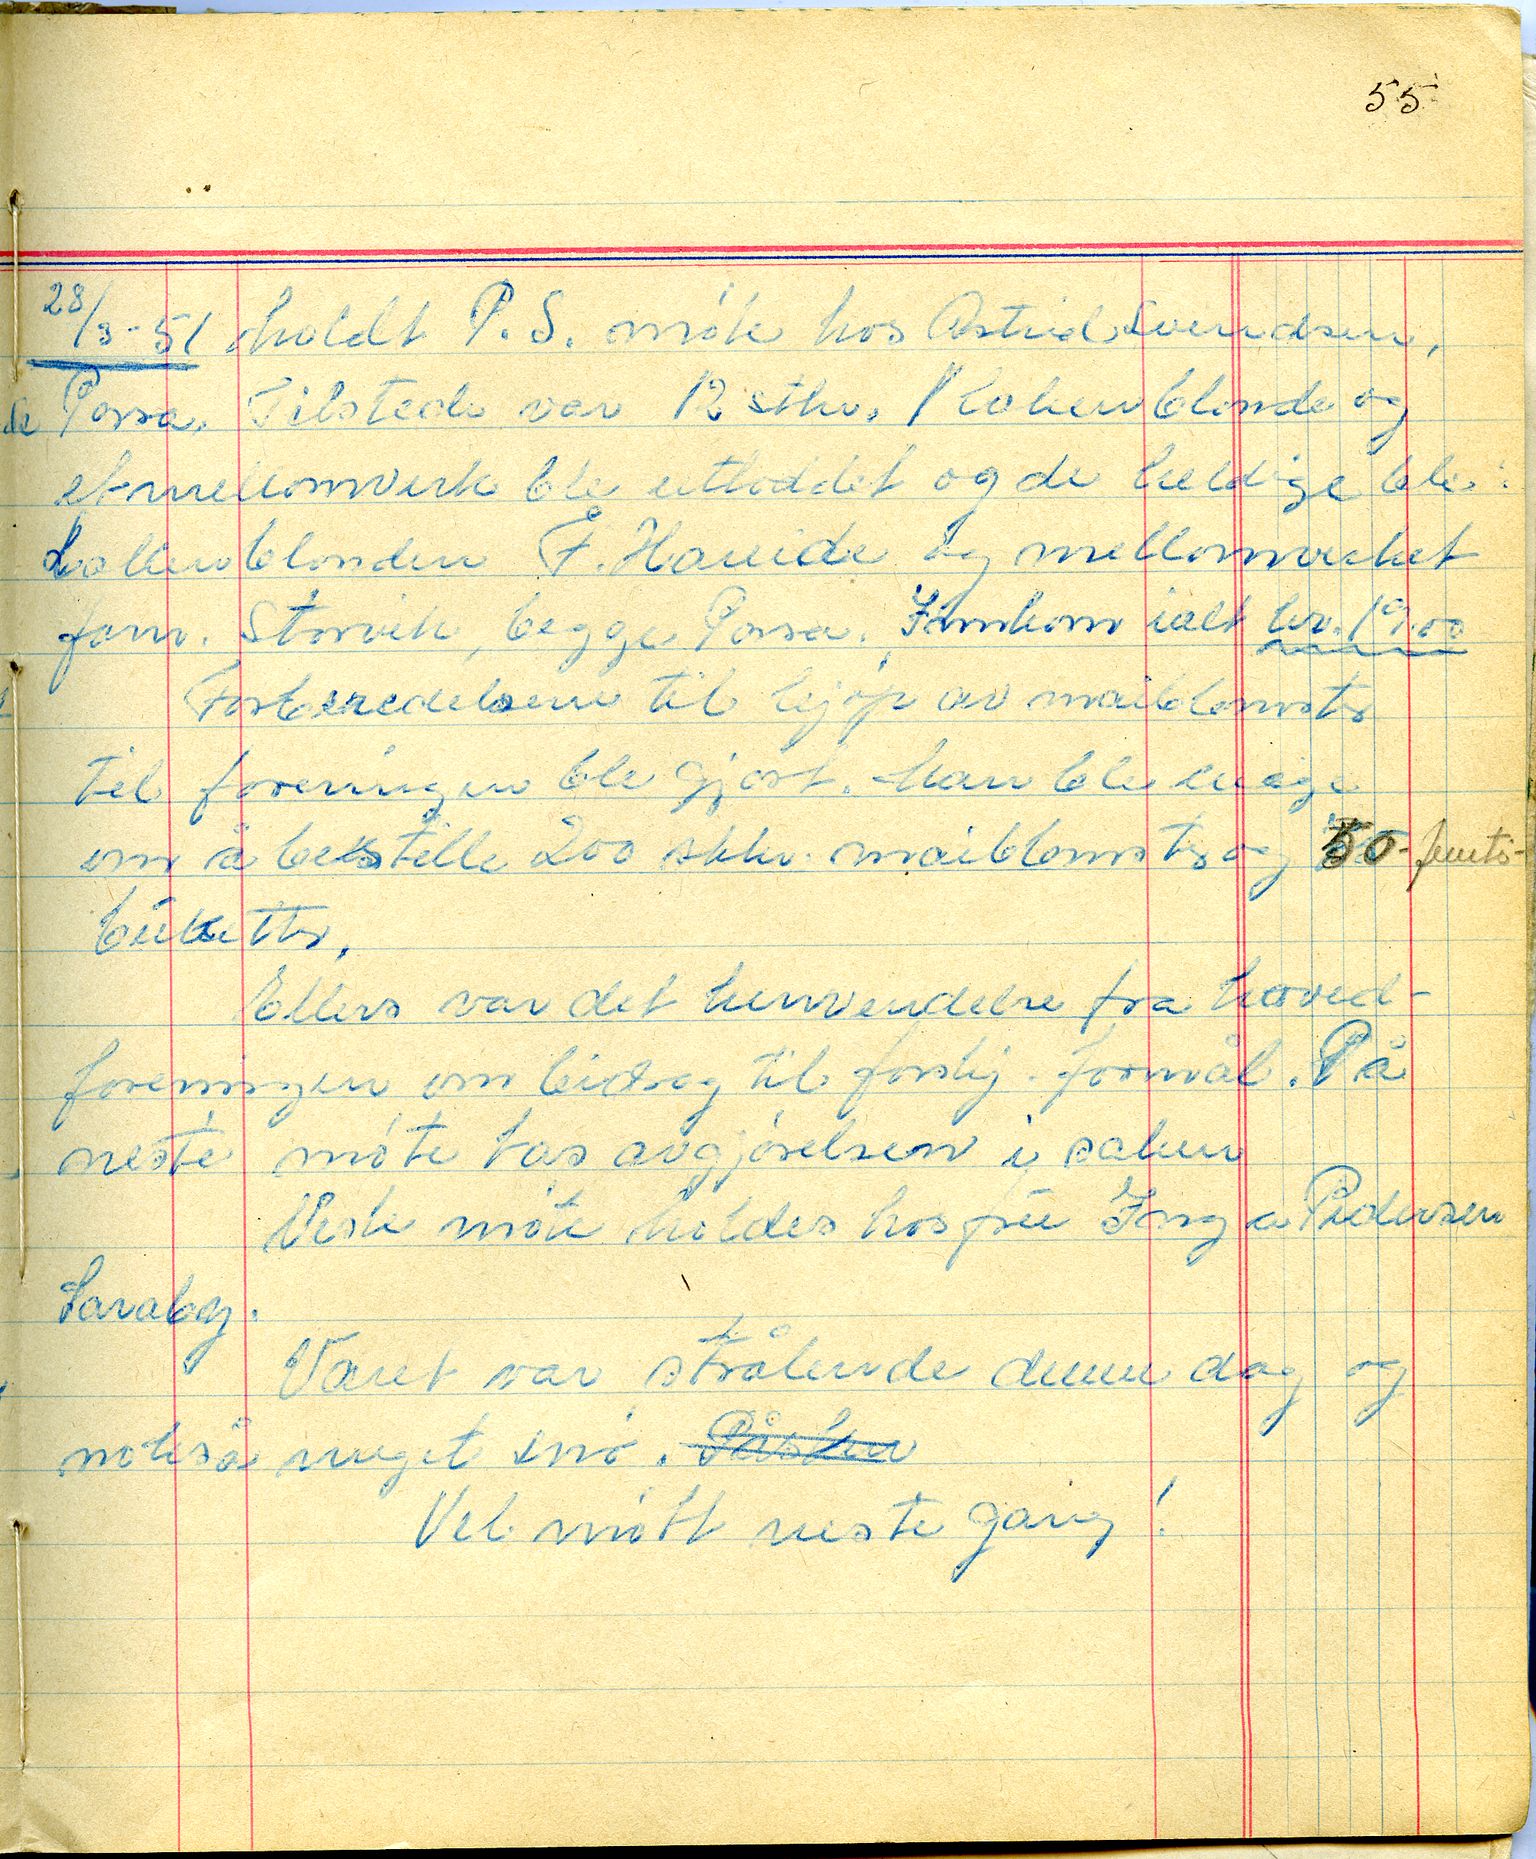 55
28/3-51 holdt P. S. møte hos Astrid Svendsen,
Porsa. Tilstede var 12 stkr. 1 lakenblonde og
et mellomverk ble utloddet og de heldige ble:
Lakenblonden F. Hareide og mellomverket
fam. Storvik, begge Porsa. Innkom ialt kr. 19.00
Forberedelsene til kjøp av maiblomster
til foreningen ble gjort. Man ble enige
om å bestille 200 stkr. maiblomster og 50-
buketter.
Ellers var det henvendelse fra hoved-
foreningen om bidrag til forskj. formål. På
neste møte tas avgjørelsen i saken
Neste møte holdes hos fru Inga Pedersen
Saraby.
Været var strålende denne dag og
nokså meget snø. Påsken
Vel møtt neste gang!